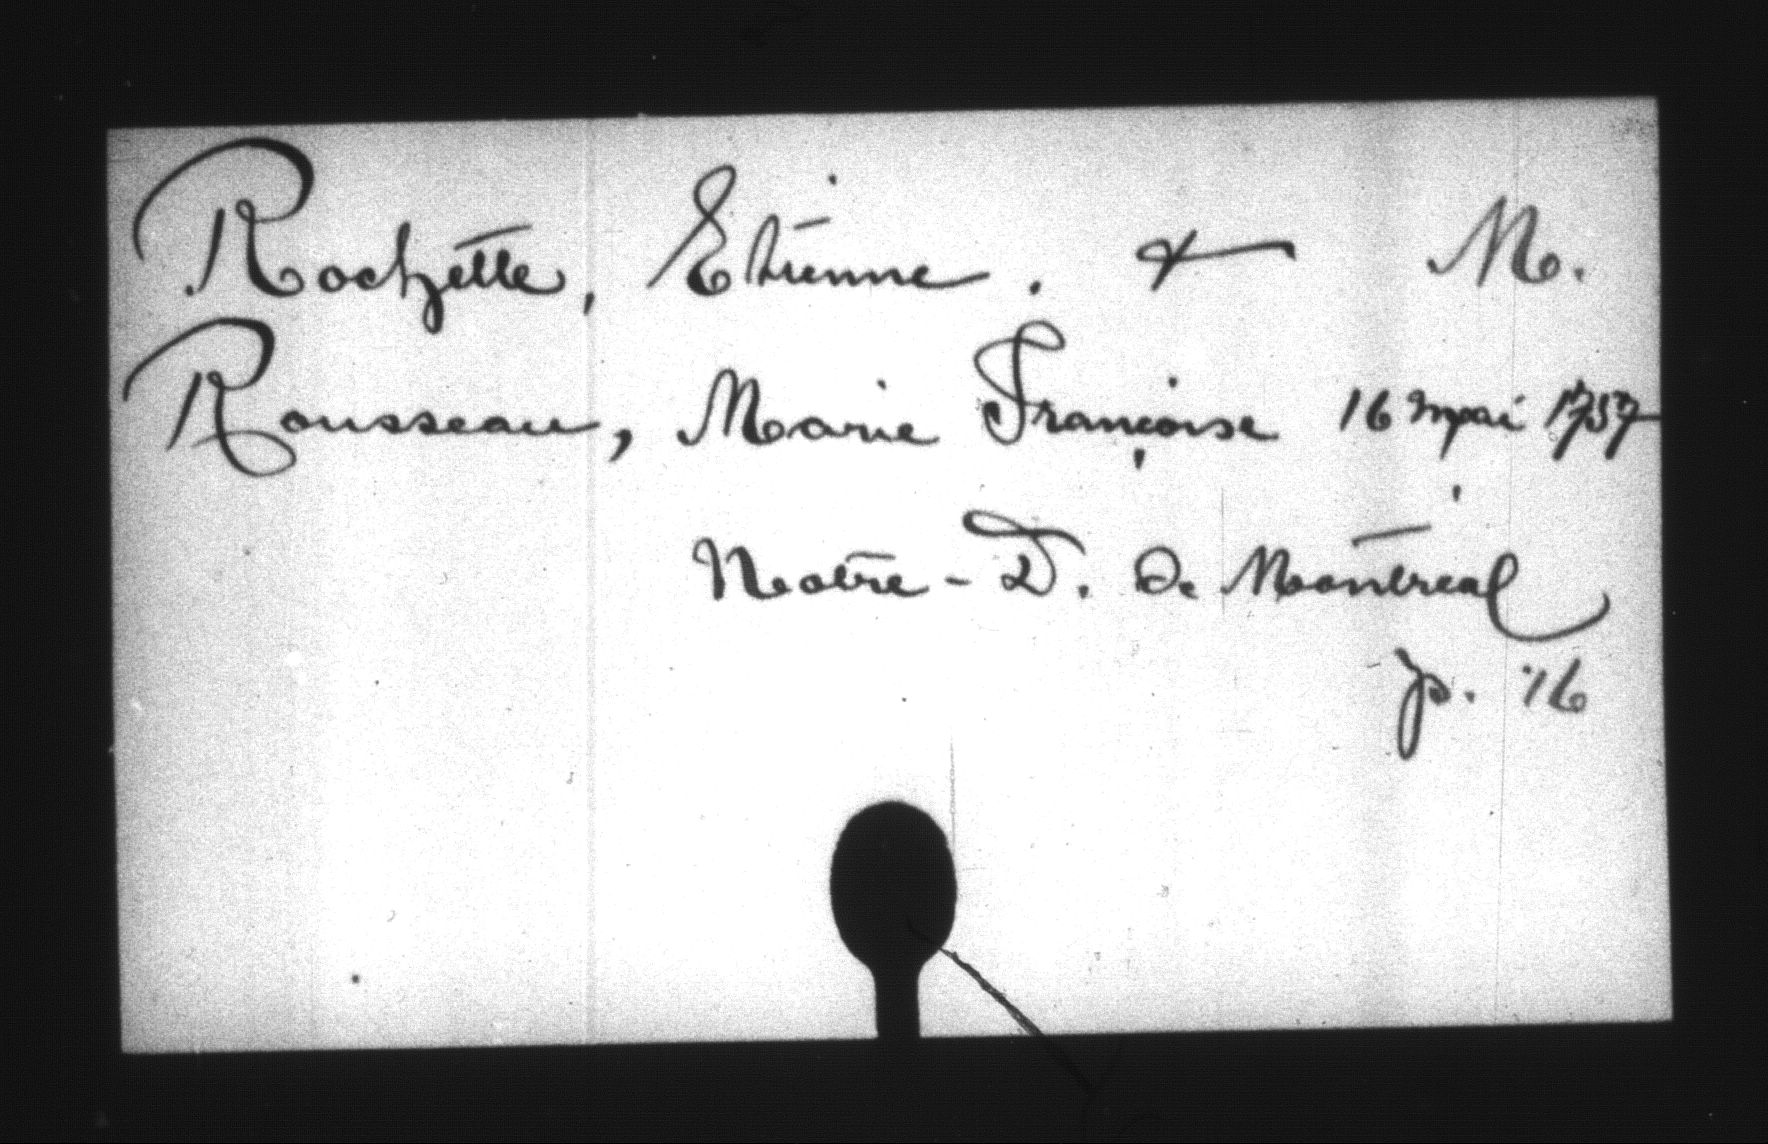 Rochette, Etienne. & M.
Rousseau, Marie Françoise 16 mai 1757
Notre-D. de Montréal
p. 16